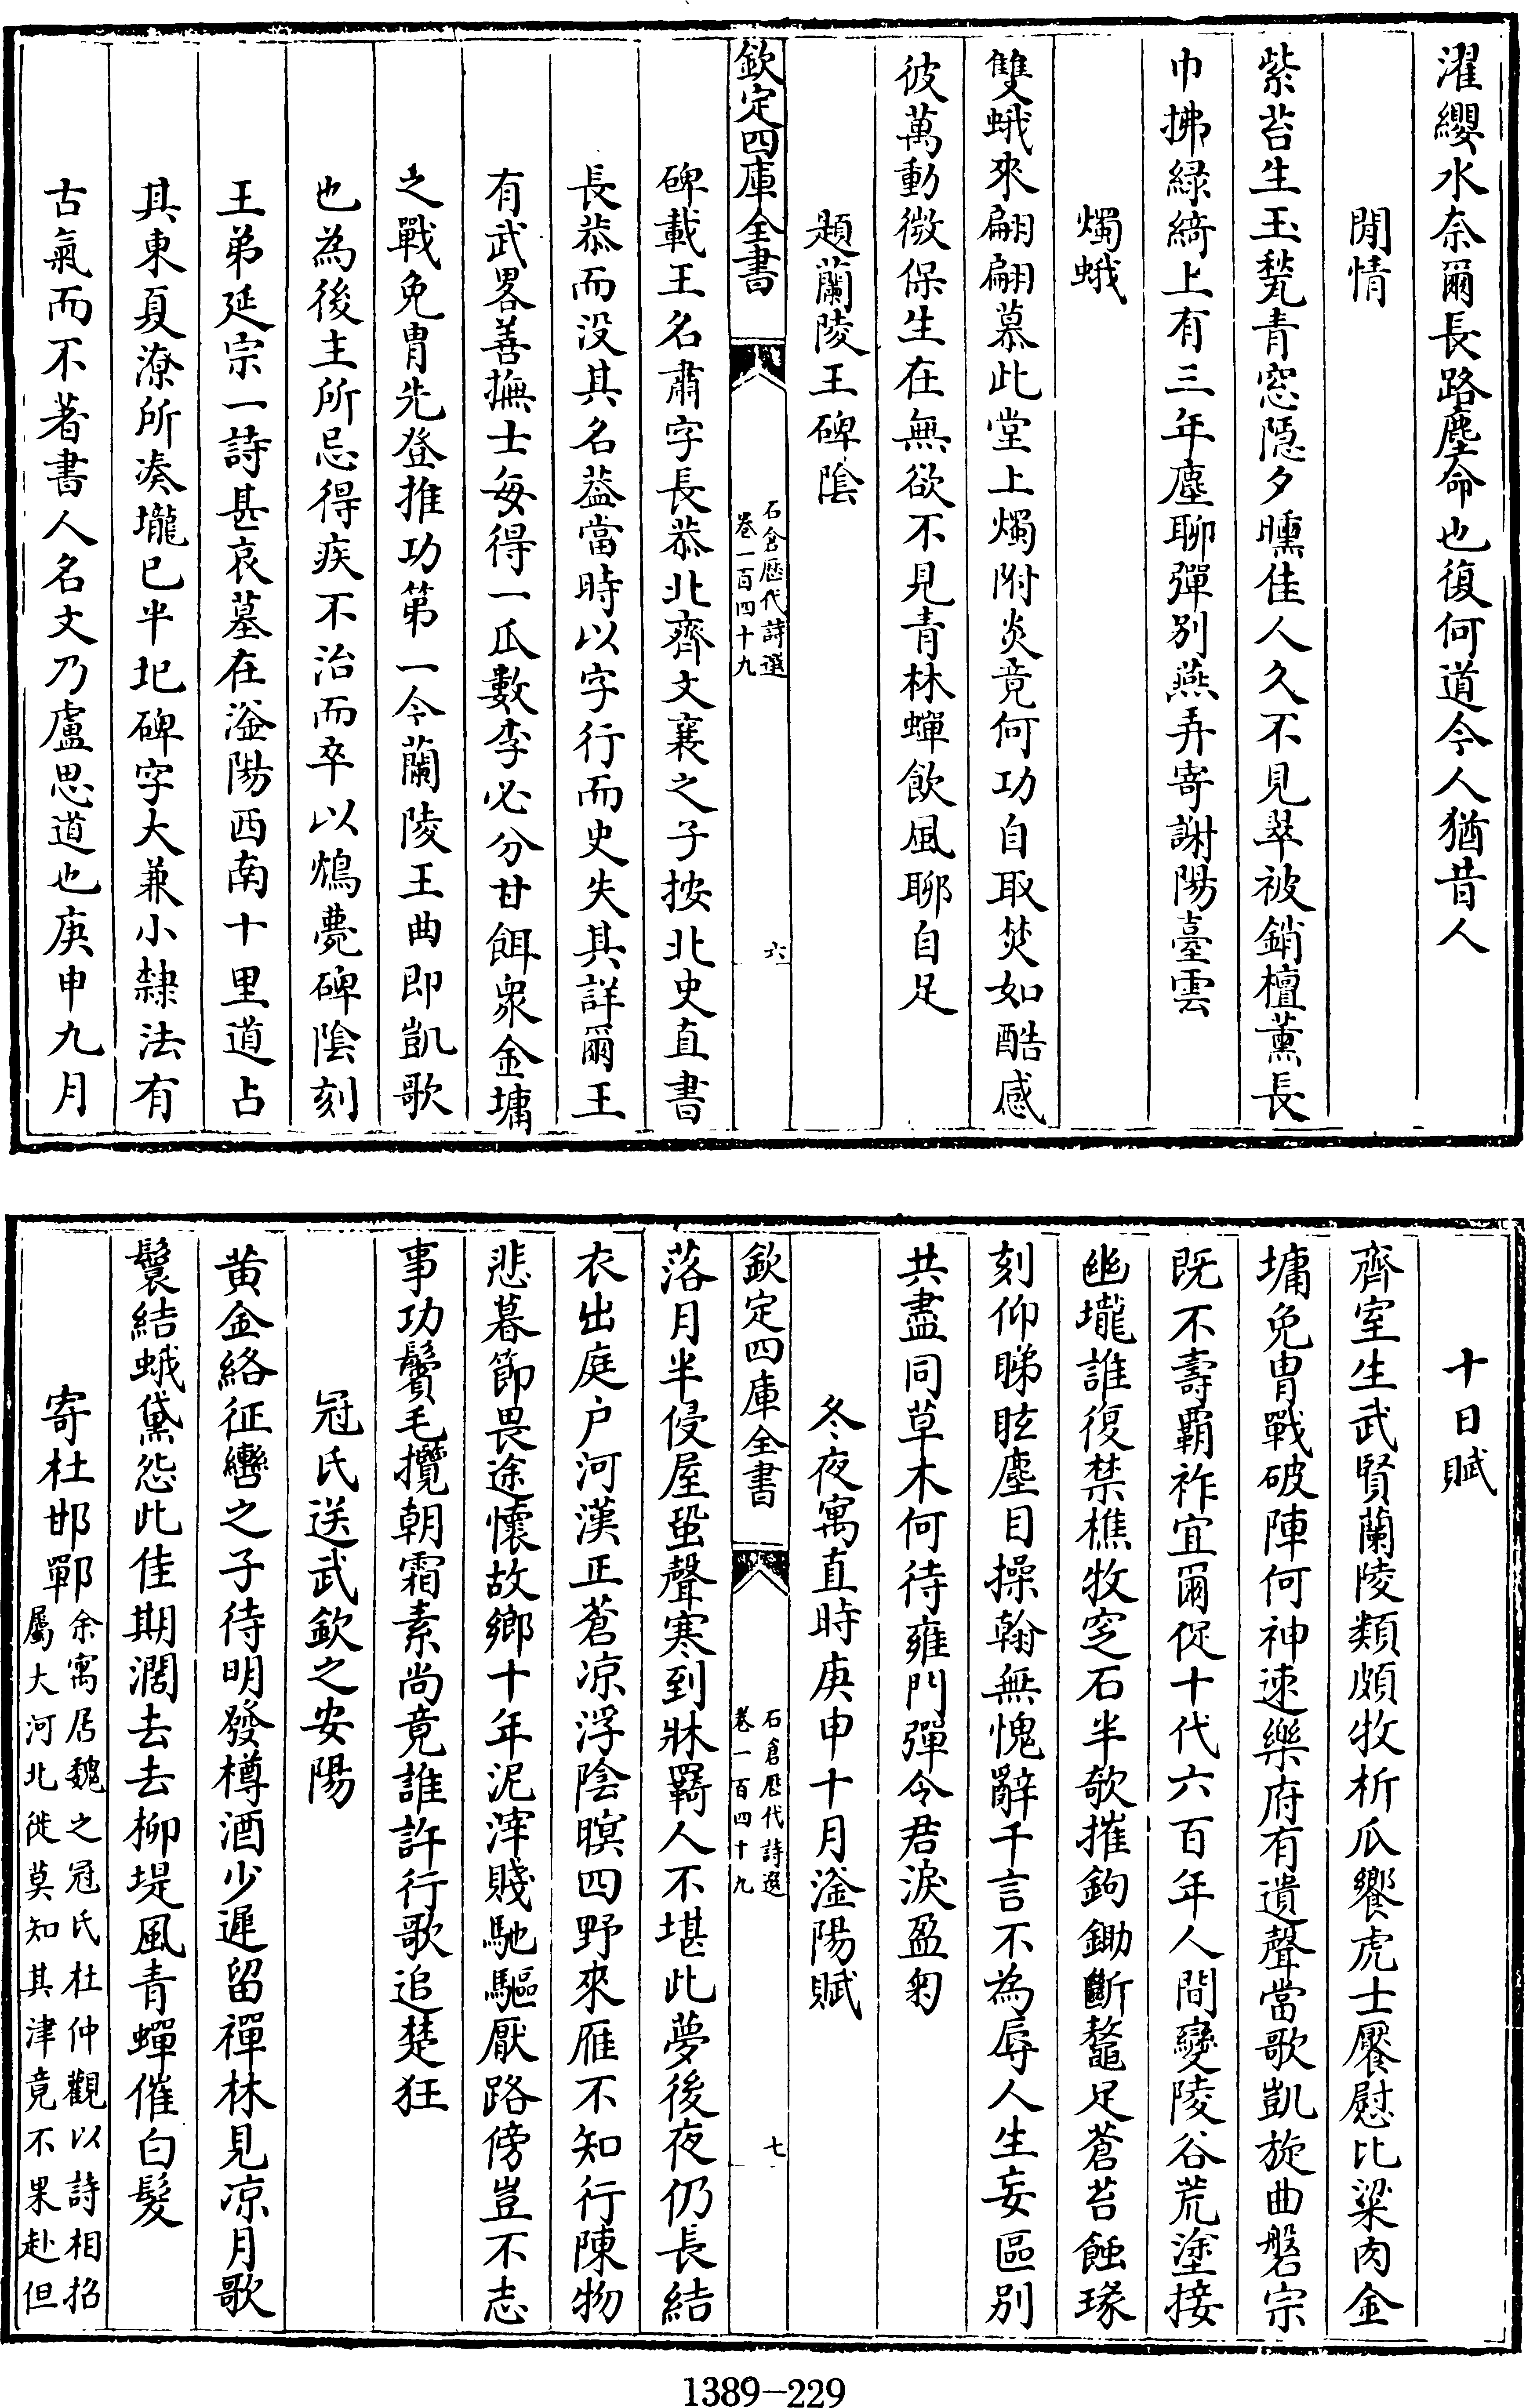 濯纓水奈爾長路塵命也復何道今人猶昔人
閒情
紫苔生玉甃青窓隱夕曛佳人久不見翠被銷檀薰長
巾拂緑綺上有三年塵聊彈别燕弄寄謝陽臺雲
燭蛾
雙蛾來翩翩慕此堂上燭附炎竟何功自取焚如酷感
彼萬動微保生在無欲不見青林蟬飲風聊自足
題蘭陵王碑陰
欽定四庫全書
石倉歴代詩選
卷一百四十九
六
碑載王名肅字長恭北齊文襄之子按北史直書
長恭而没其名葢當時以字行而史失其詳爾王
有武畧善撫士每得一瓜數李必分甘餌衆金墉
之戰免胄先登推功第一今蘭陵王曲即凱歌
也為後主所忌得疾不治而卒以鴆薨碑陰刻
王弟延宗一詩甚哀墓在滏陽西南十里道占
其東夏潦所湊壠已半圮碑字大兼小隸法有
古氣而不著書人名文乃盧思道也庚申九月
十日賦
齊室生武賢蘭陵類頗牧析瓜饗虎士饜慰比粱肉金
墉免胄戰破陣何神速樂府有遺聲當歌凱旋曲磐宗
既不壽覇祚宜爾促十代六百年人間變陵谷荒塗接
幽壠誰復禁樵牧窆石半欹摧鉤鋤斷鼇足蒼苔蝕瑑
刻仰睇眩塵目操翰無愧辭千言不為辱人生妄區别
共盡同草木何待雍門彈令君淚盈匊
冬夜寓直時庚申十月滏陽賦
欽定四庫全書
石倉歴代詩選
卷一百四十九
七
落月半侵屋蛩聲寒到牀羇人不堪此夢後夜仍長結
衣出庭户河漢正蒼凉浮陰暝四野來雁不知行陳物
悲暮節畏途懷故鄉十年泥滓賤馳驅厭路傍豈不志
事功鬢毛攬朝霜素尚竟誰許行歌追楚狂
冠氏送武欽之安陽
黄金絡征轡之子待明發樽酒少遲留禪林見凉月歌
鬟結蛾黛怨此佳期濶去去柳堤風青蟬催白髮
寄杜邯鄲
余寓居魏之冠氏杜仲觀以詩相招
屬大河北徙莫知其津竟不果赴但
1389-229